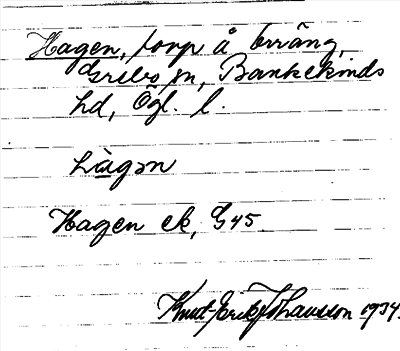 Hagen, torp å Vräng,
Grebo sn, Bankekinds
hd, Ögl. l.
hàgən
Hagen ek, G45
Knut-Erik Johansson 1934.